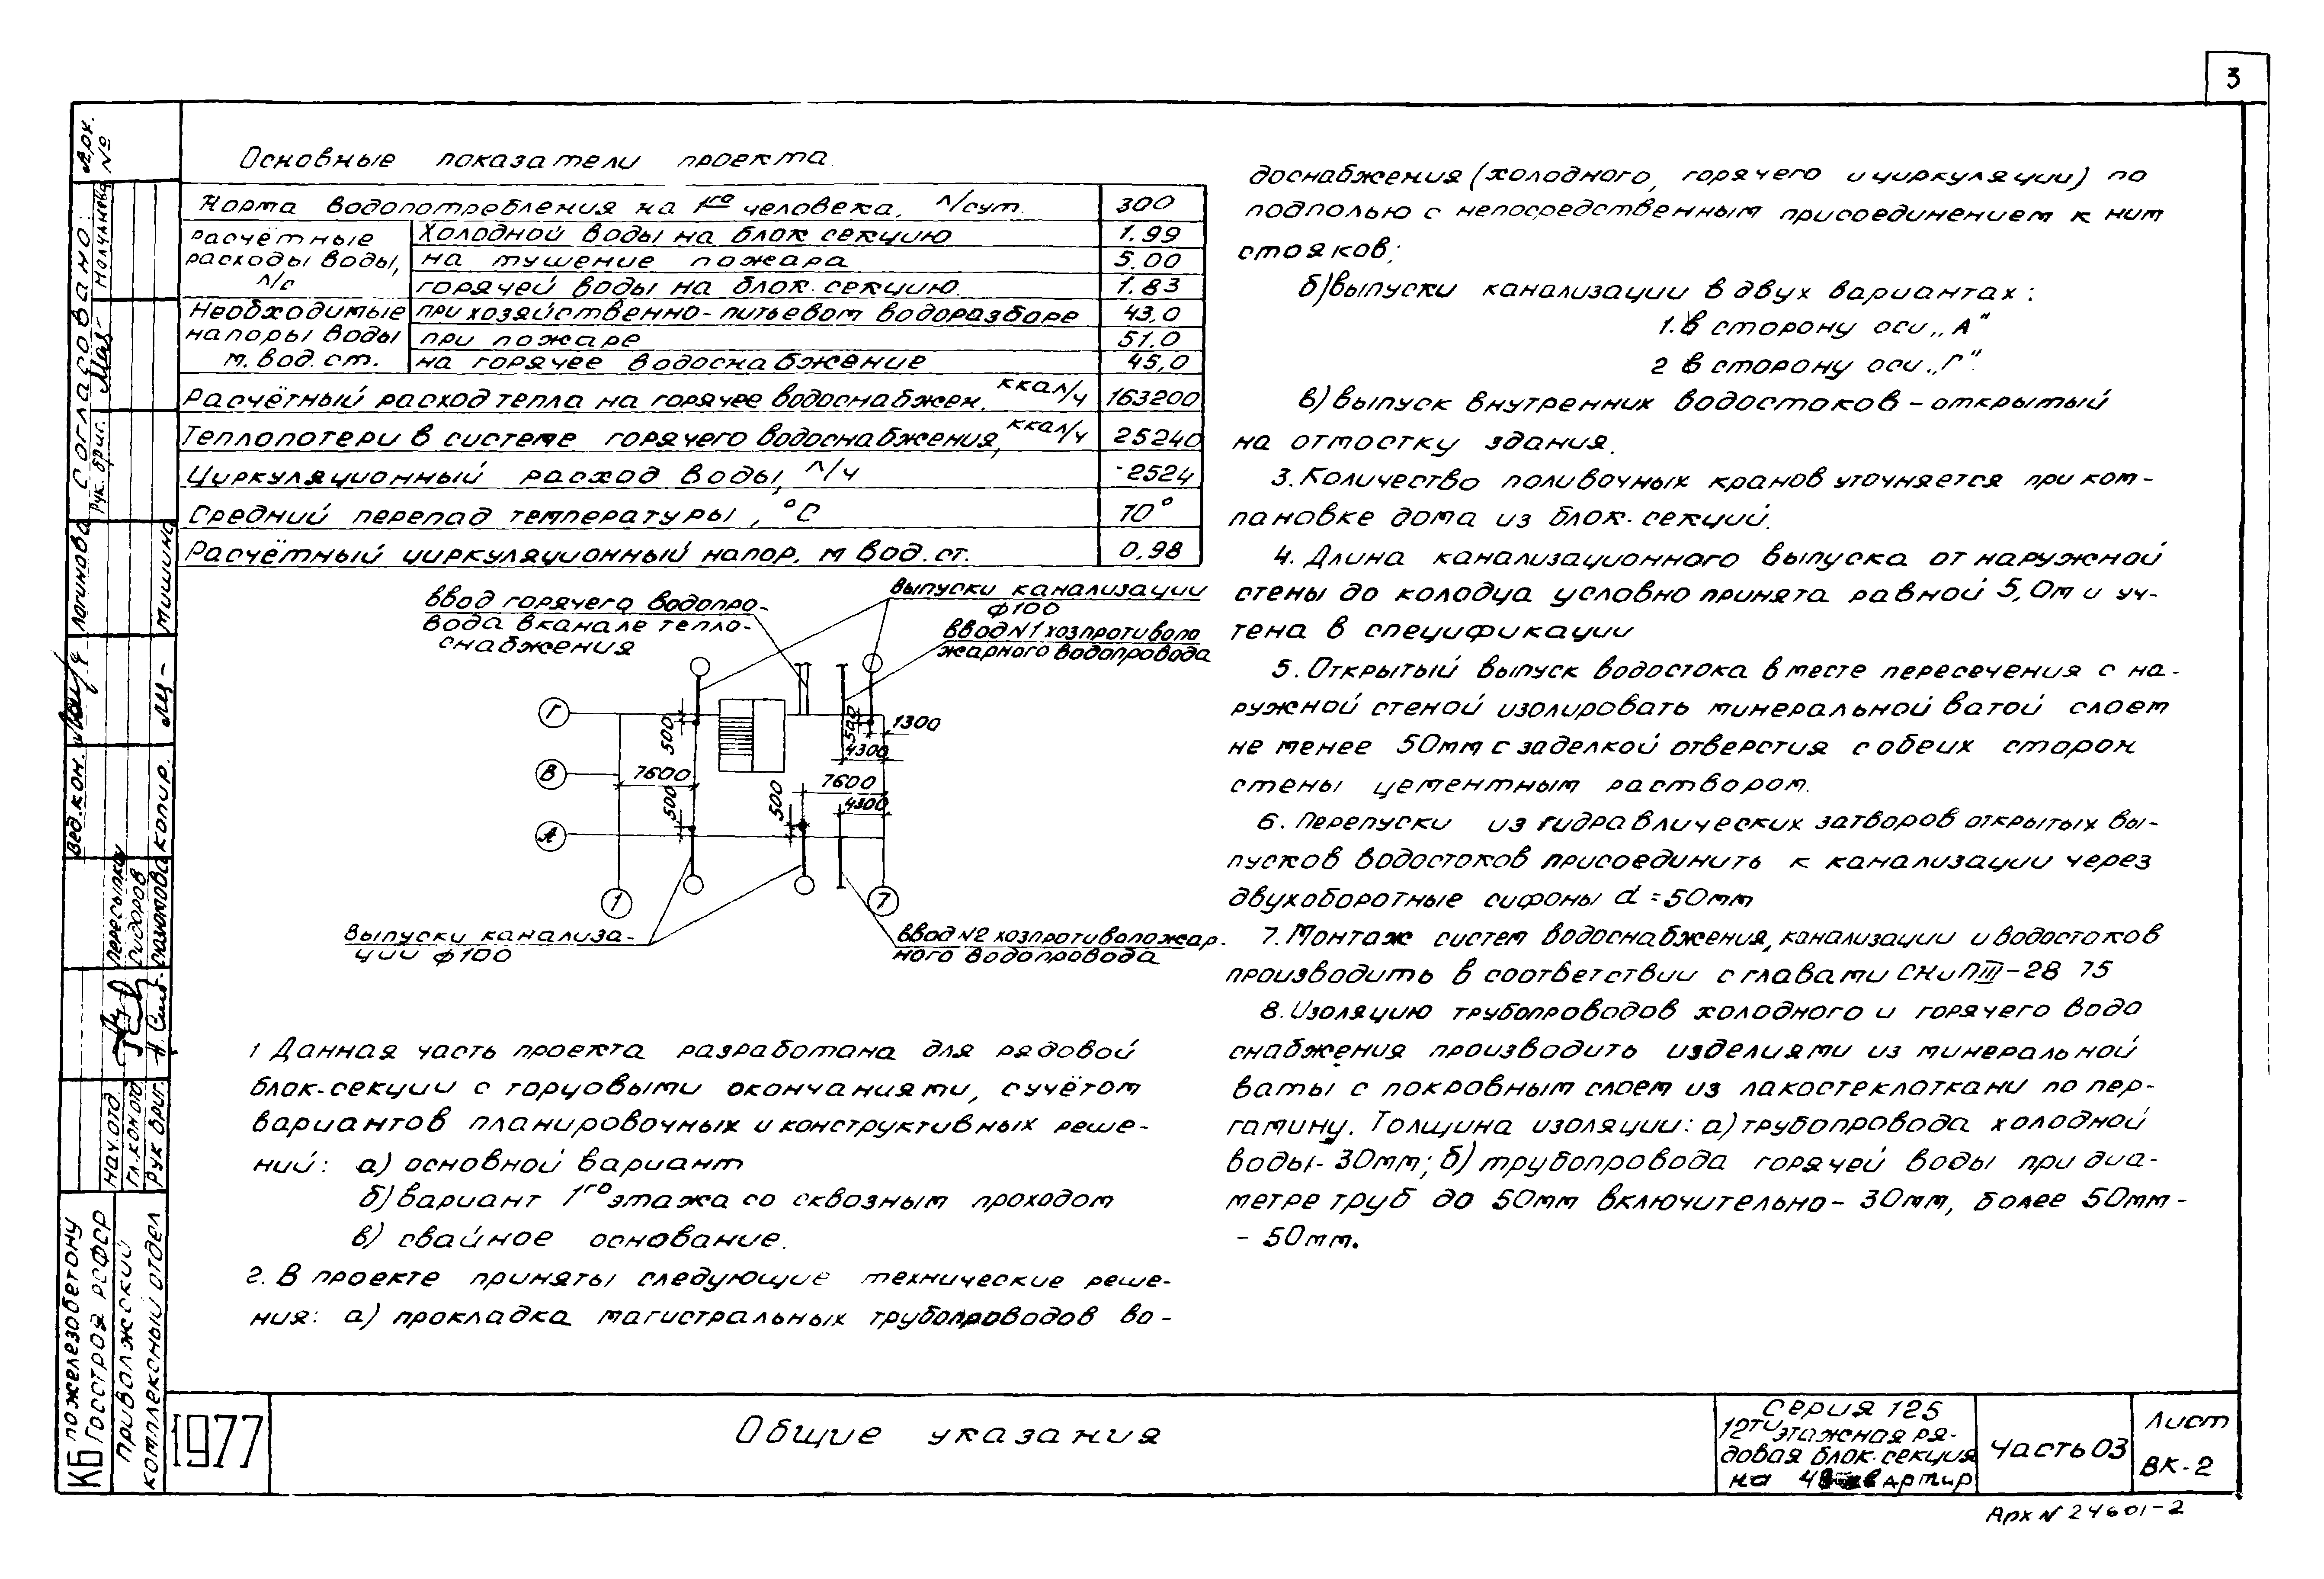 3
Основные показатели проекта.
Норма водопотребления на 1го человека, л/сут. 300
Расчётные расходы воды, л/с
Холодной воды на блок секцию 1.99
на тушение пожара 5.00
горячей воды на блок-секцию. 1.83
Необходимые напоры воды м. вод. ст.
при хозяйственно-питьевом водоразборе 43,0
при пожаре 51.0
на горячее водоснабжение 45,0
Расчётный расход тепла на горячее водоснабжен. ккал/ч 163200
Теплопотери в системе горячего водоснабжения, ккал/ч 25240
Циркуляционный расход воды, л/ч 2524
Средний перепад температуры, °С 10°
Расчётный циркуляционный напор. м вод. ст. 0,98
ввод горячего водопро-
вода в канале тепло-
снабжения
выпуски канализации
ф100
ввод N1 хозпротивопо
жарного водопровода
Г
500
500
1300
4300
В
7600
7600
500
500
4300
А
1
7
выпуски канализа-
ции ф100
ввод N2 хозпротивопожар-
ного водопровода
1 Данная часть проекта разработана для рядовой
блок-секции с торцовыми окончаниями, с учётом
вариантов планировочных и конструктивных реше-
ний: а) основной вариант
б) вариант 1го этажа со сквозным проходом
в) свайное основание.
2. В проекте приняты следующие технические реше-
ния: а) прокладка магистральных трубопроводов во-
доснабжения (холодного, горячего и циркуляции) по
подполью с непосредственным присоединением к ним
стояков;
б) выпуски канализации в двух вариантах:
1. В сторону оси „А"
2 в сторону оси „Г".
в) выпуск внутренних водостоков - открытый
на отмостку здания.
3. Количество поливочных кранов уточняется при ком-
пановке дома из блок-секций.
4. Длина канализационного выпуска от наружной
стены до колодца условно принята равной 5,0м и уч-
тена в спецификации
5. Открытый выпуск водостока в месте пересечения с на-
ружной стеной изолировать минеральной ватой слоем
не менее 50мм с заделкой отверстия с обеих сторон
стены цементным раствором.
6. Перепуски из гидравлических затворов открытых вы-
пусков водостоков присоединить к канализации через
двухоборотные сифоны d = 50мм
7. Монтаж систем водоснабжения, канализации и водостоков
производить в соответствии с главами СНиП III-28 75
8. Изоляцию трубопроводов холодного и горячего водо
снабжения производить изделиями из минеральной
ваты с покровным слоем из лакостеклоткани по пер-
гамину. Толщина изоляции: а) трубопровода холодной
воды- 30мм; б) трубопровода горячей воды при диа-
метре труб до 50мм включительно- 30мм, более 50мм-
- 50мм.
Арх. №
Согласовано:
Рук. бриг. Молчанова
Вед. кон. Логинова
копир. Мишина
Нач. отд
Гл. кон. отд Сидоров
Рук. бриг.
КБ по железобетону
Госстроя РСФСР
Приволжский
комплексный отдел
1977
Общие указания
Серия 125
12ти этажная ря-
довая блок-секция
на 48 квартир
Часть 03
Лист
ВК-2
Арх N 24601-2